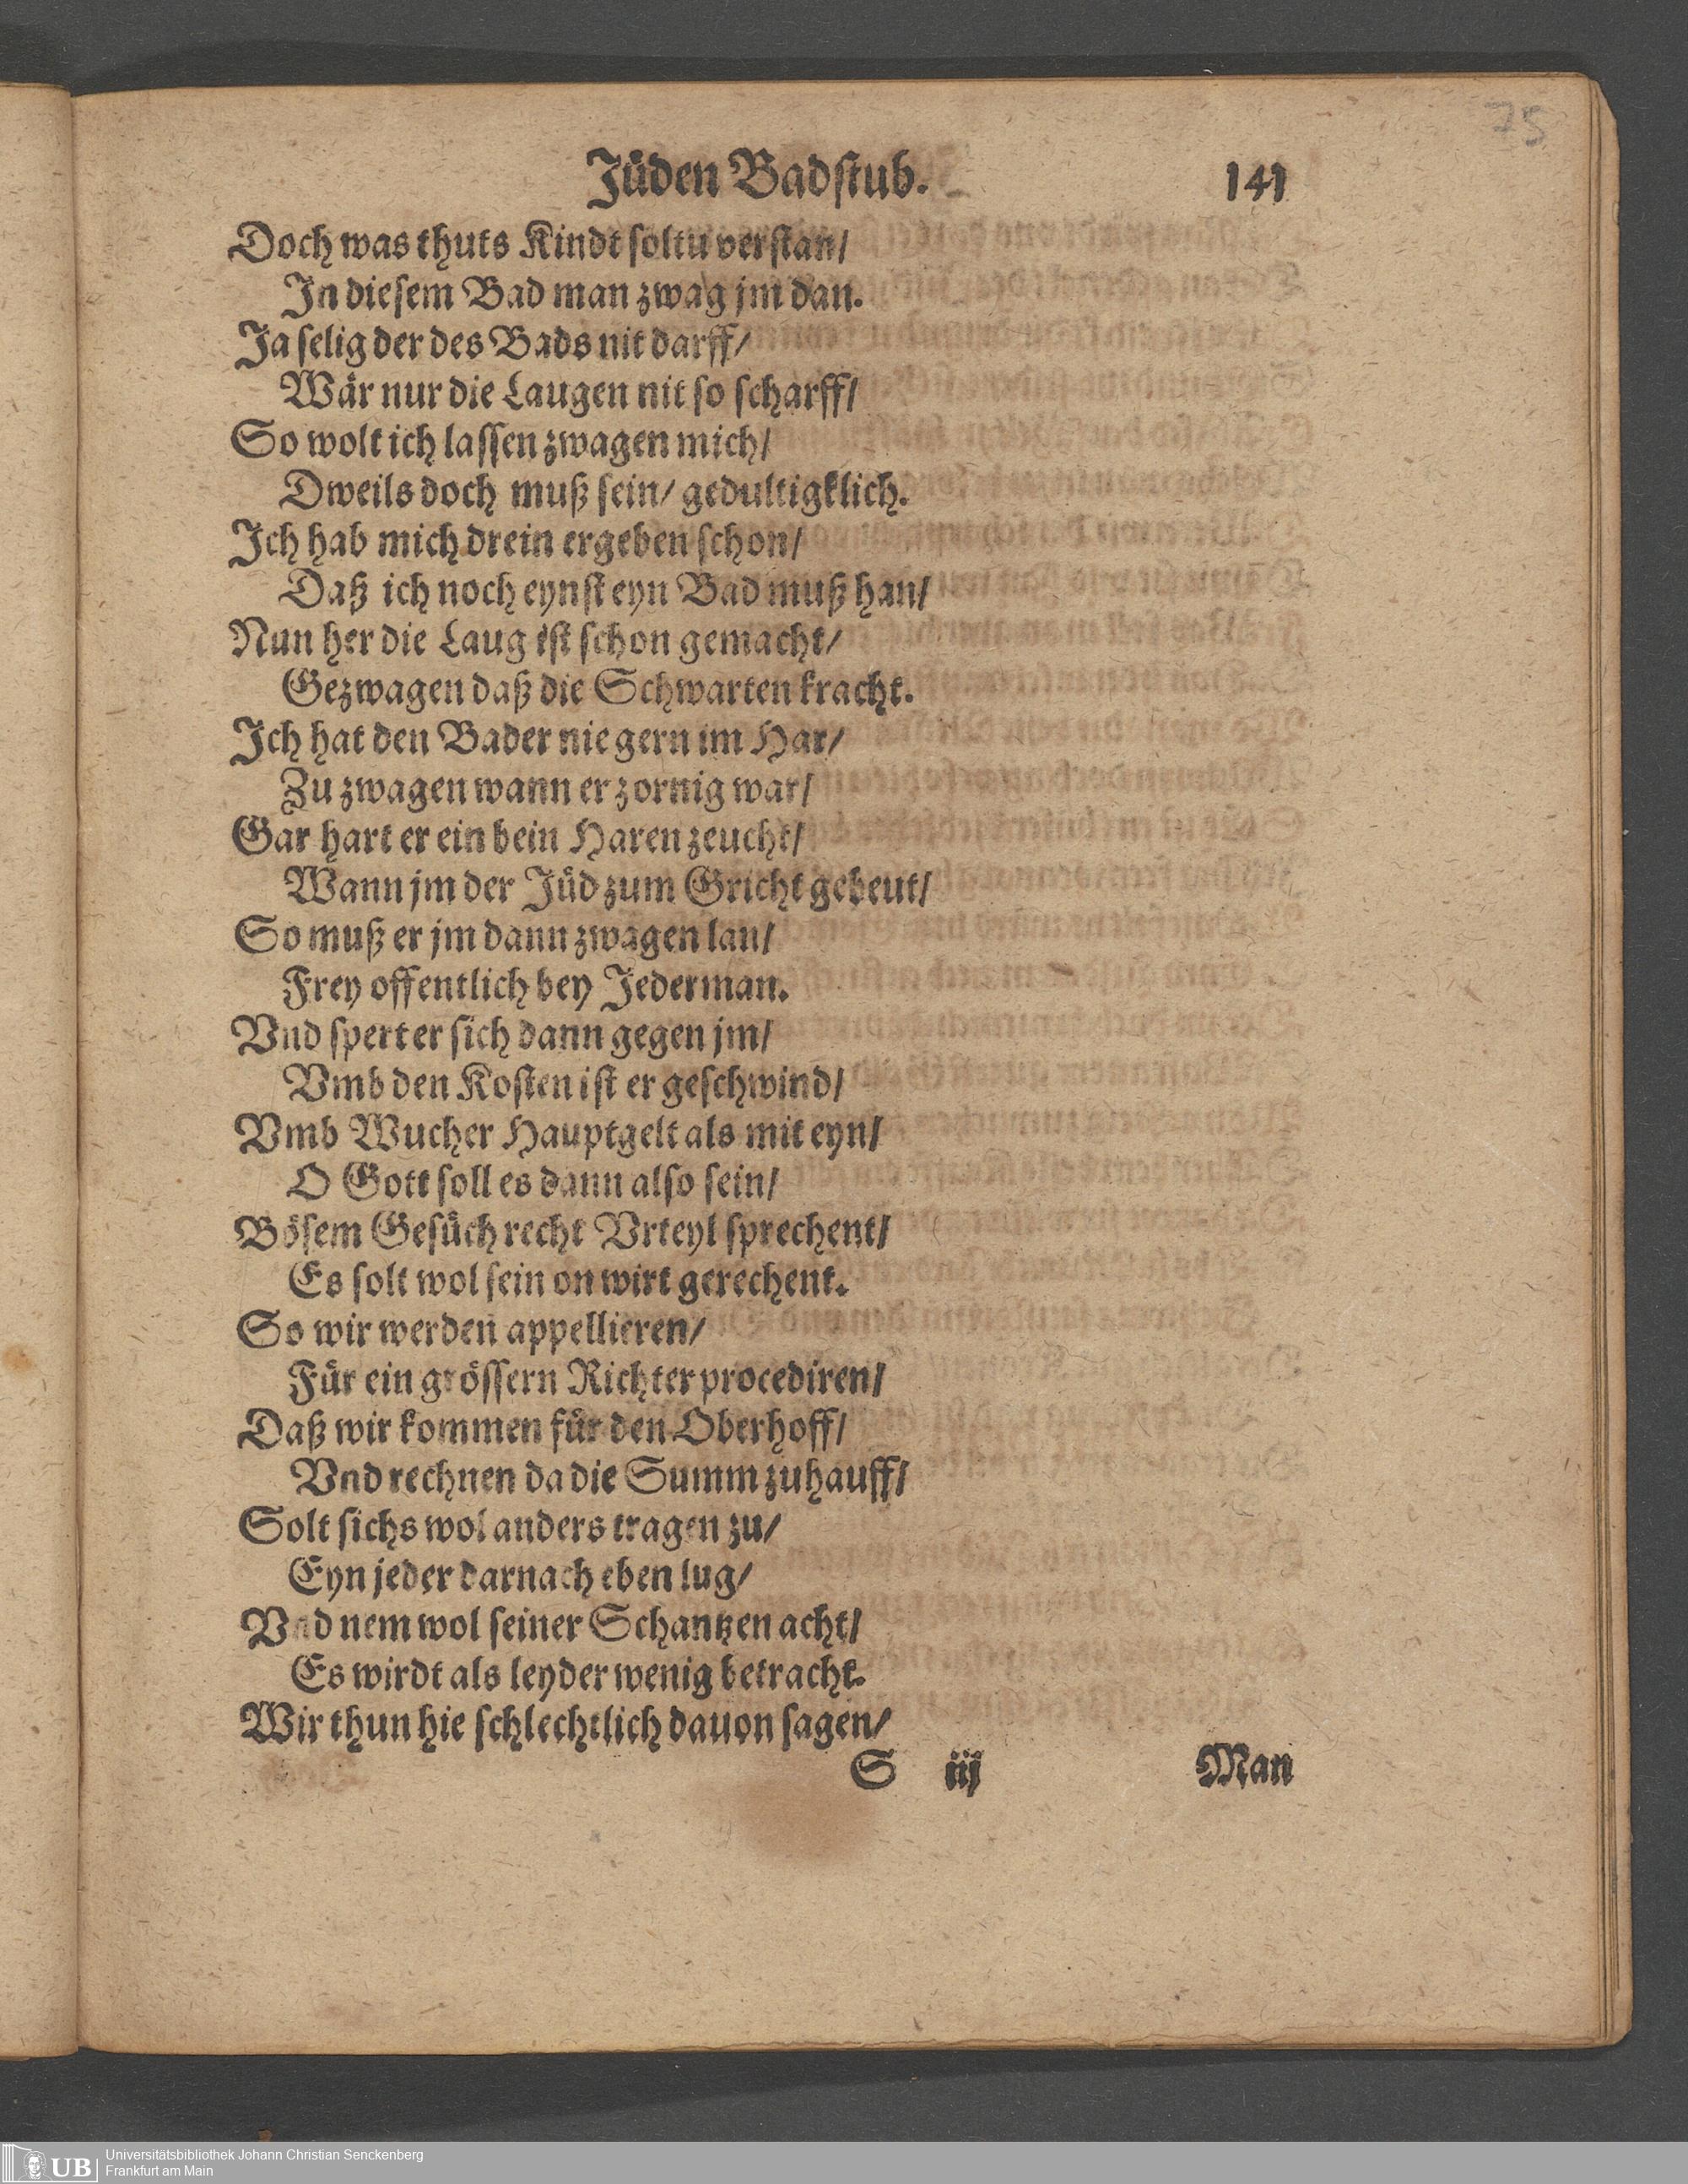 75
Jüden Badstub. 141
Doch was thuts Kindt soltu verstan/
In diesem Bad man zwag jm dan.
Ja selig der des Bads nit darff/
Wär nur die Laugen nit so scharff/
So wolt ich lassen zwagen mich/
Dweils doch muß sein/ gedultigklich.
Ich hab mich drein ergeben schon/
Daß ich noch eynst eyn Bad muß han/
Nun her die Laug ist schon gemacht/
Gezwagen daß die Schwarten kracht.
Ich hat den Bader nie gern im Har/
Zu zwagen wann er zornig war/
Gar hart er ein bein Haren zeucht/
Wann jm der Jüd zum Gricht gebeut/
So muß er jm dann zwagen lan/
Frey offentlich bey Jederman.
Vnd spert er sich dann gegen jm/
Vmb den Kosten ist er geschwind/
Vmb Wucher Hauptgelt als mit eyn/
O Gott soll es dann also sein/
Bösem Gesüch recht Vrteyl sprechent/
Es solt wol sein on wirt gerechent.
So wir werden appellieren/
Für ein grössern Richter procediren/
Daß wir kommen für den Oberhoff/
Vnd rechnen da die Summ zuhauff/
Solt sichs wol anders tragen zu/
Eyn jeder darnach eben lug/
Vnd nem wol seiner Schantzen acht/
Es wirdt als leyder wenig betracht.
Wir thun hie schlechtlich dauon sagen/
S iij Man
UB Universitätsbibliothek Johann Christian Senckenberg
Frankfurt am Main